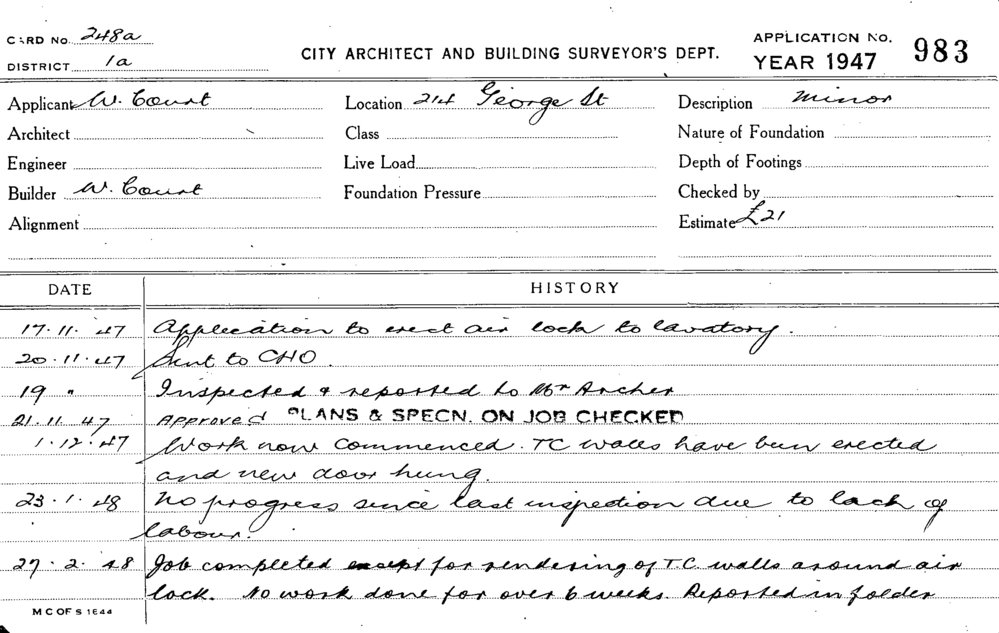 CARD No. 248a
DISTRICT 1a
CITY ARCHITECT AND BUILDING SURVEYOR'S DEPT.
APPLICATION No.
YEAR 1947 983
Applicant W. Court Location 214 George St Description minor
Architect Class Nature of Foundation
Engineer Live Load Depth of Footings
Builder W. Court Foundation Pressure Checked by
Alignment Estimate £21
DATE HISTORY
17.11.47 Application to erect air lock to lavatory.
20.11.47 Sent to CHO.
19 " Inspected & reported to Mr Archer
21.11.47 Approved PLANS & SPECN. ON JOB CHECKED
1.12.47 Work now commenced. TC walls have been erected
and new door hung.
23.1.48 No progress since last inspection due to lack of
labour.
27.2.48 Job completed except for rendering of T.C. walls around air
lock. No work done for over 6 weeks. Reported in folder
M C OF S 1644